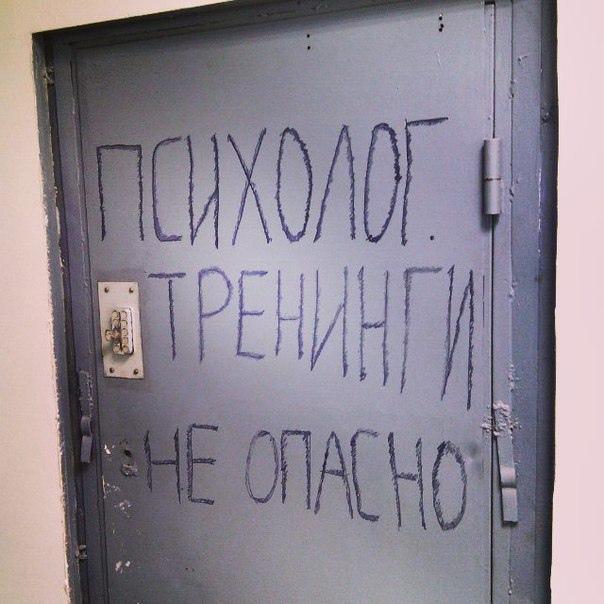 ПСИХОЛОГ.
ТРЕНИНГИ
НЕ ОПАСНО